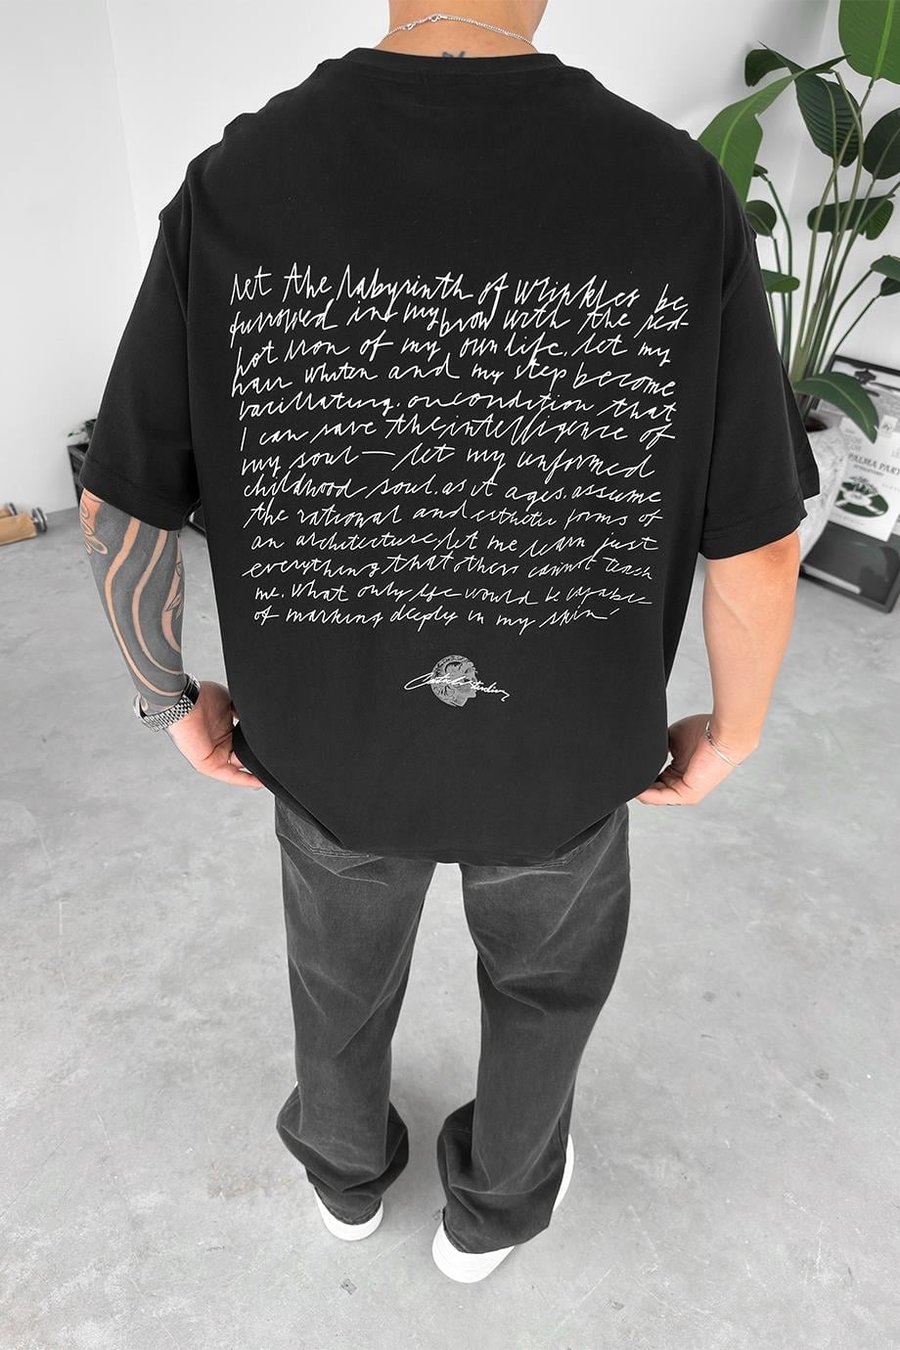 let the labyrinth of wrinkles be
furrowed in my brow with the red-
hot iron of my own life. let my
hair whiten and my step become
vacillating. on condition that
I can save the intelligence of
my soul — let my unformed
childhood soul. as it ages. assume
the rational and esthetic forms of
an architecture, let me learn just
everything that others cannot teach
me. what only life would be capable
of marking deeply in my skin'
PALMA PART